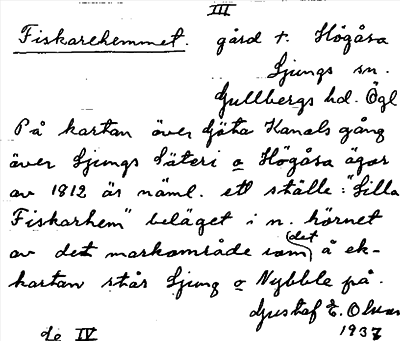 III
Fiskarehemmet. gård t. Högåsa
Ljungs sn.
Gullbergs hd. Ögl
På kartan över Göta Kanals gång
över Ljungs Säteri o Högåsa ägor
av 1812 är näml. ett ställe: "Lilla
Fiskarhem" beläget i n. hörnet
av det markområde som (det å ek-
kartan står Ljung o Nybble på.
Gustaf E. Olsson
de IV 1937